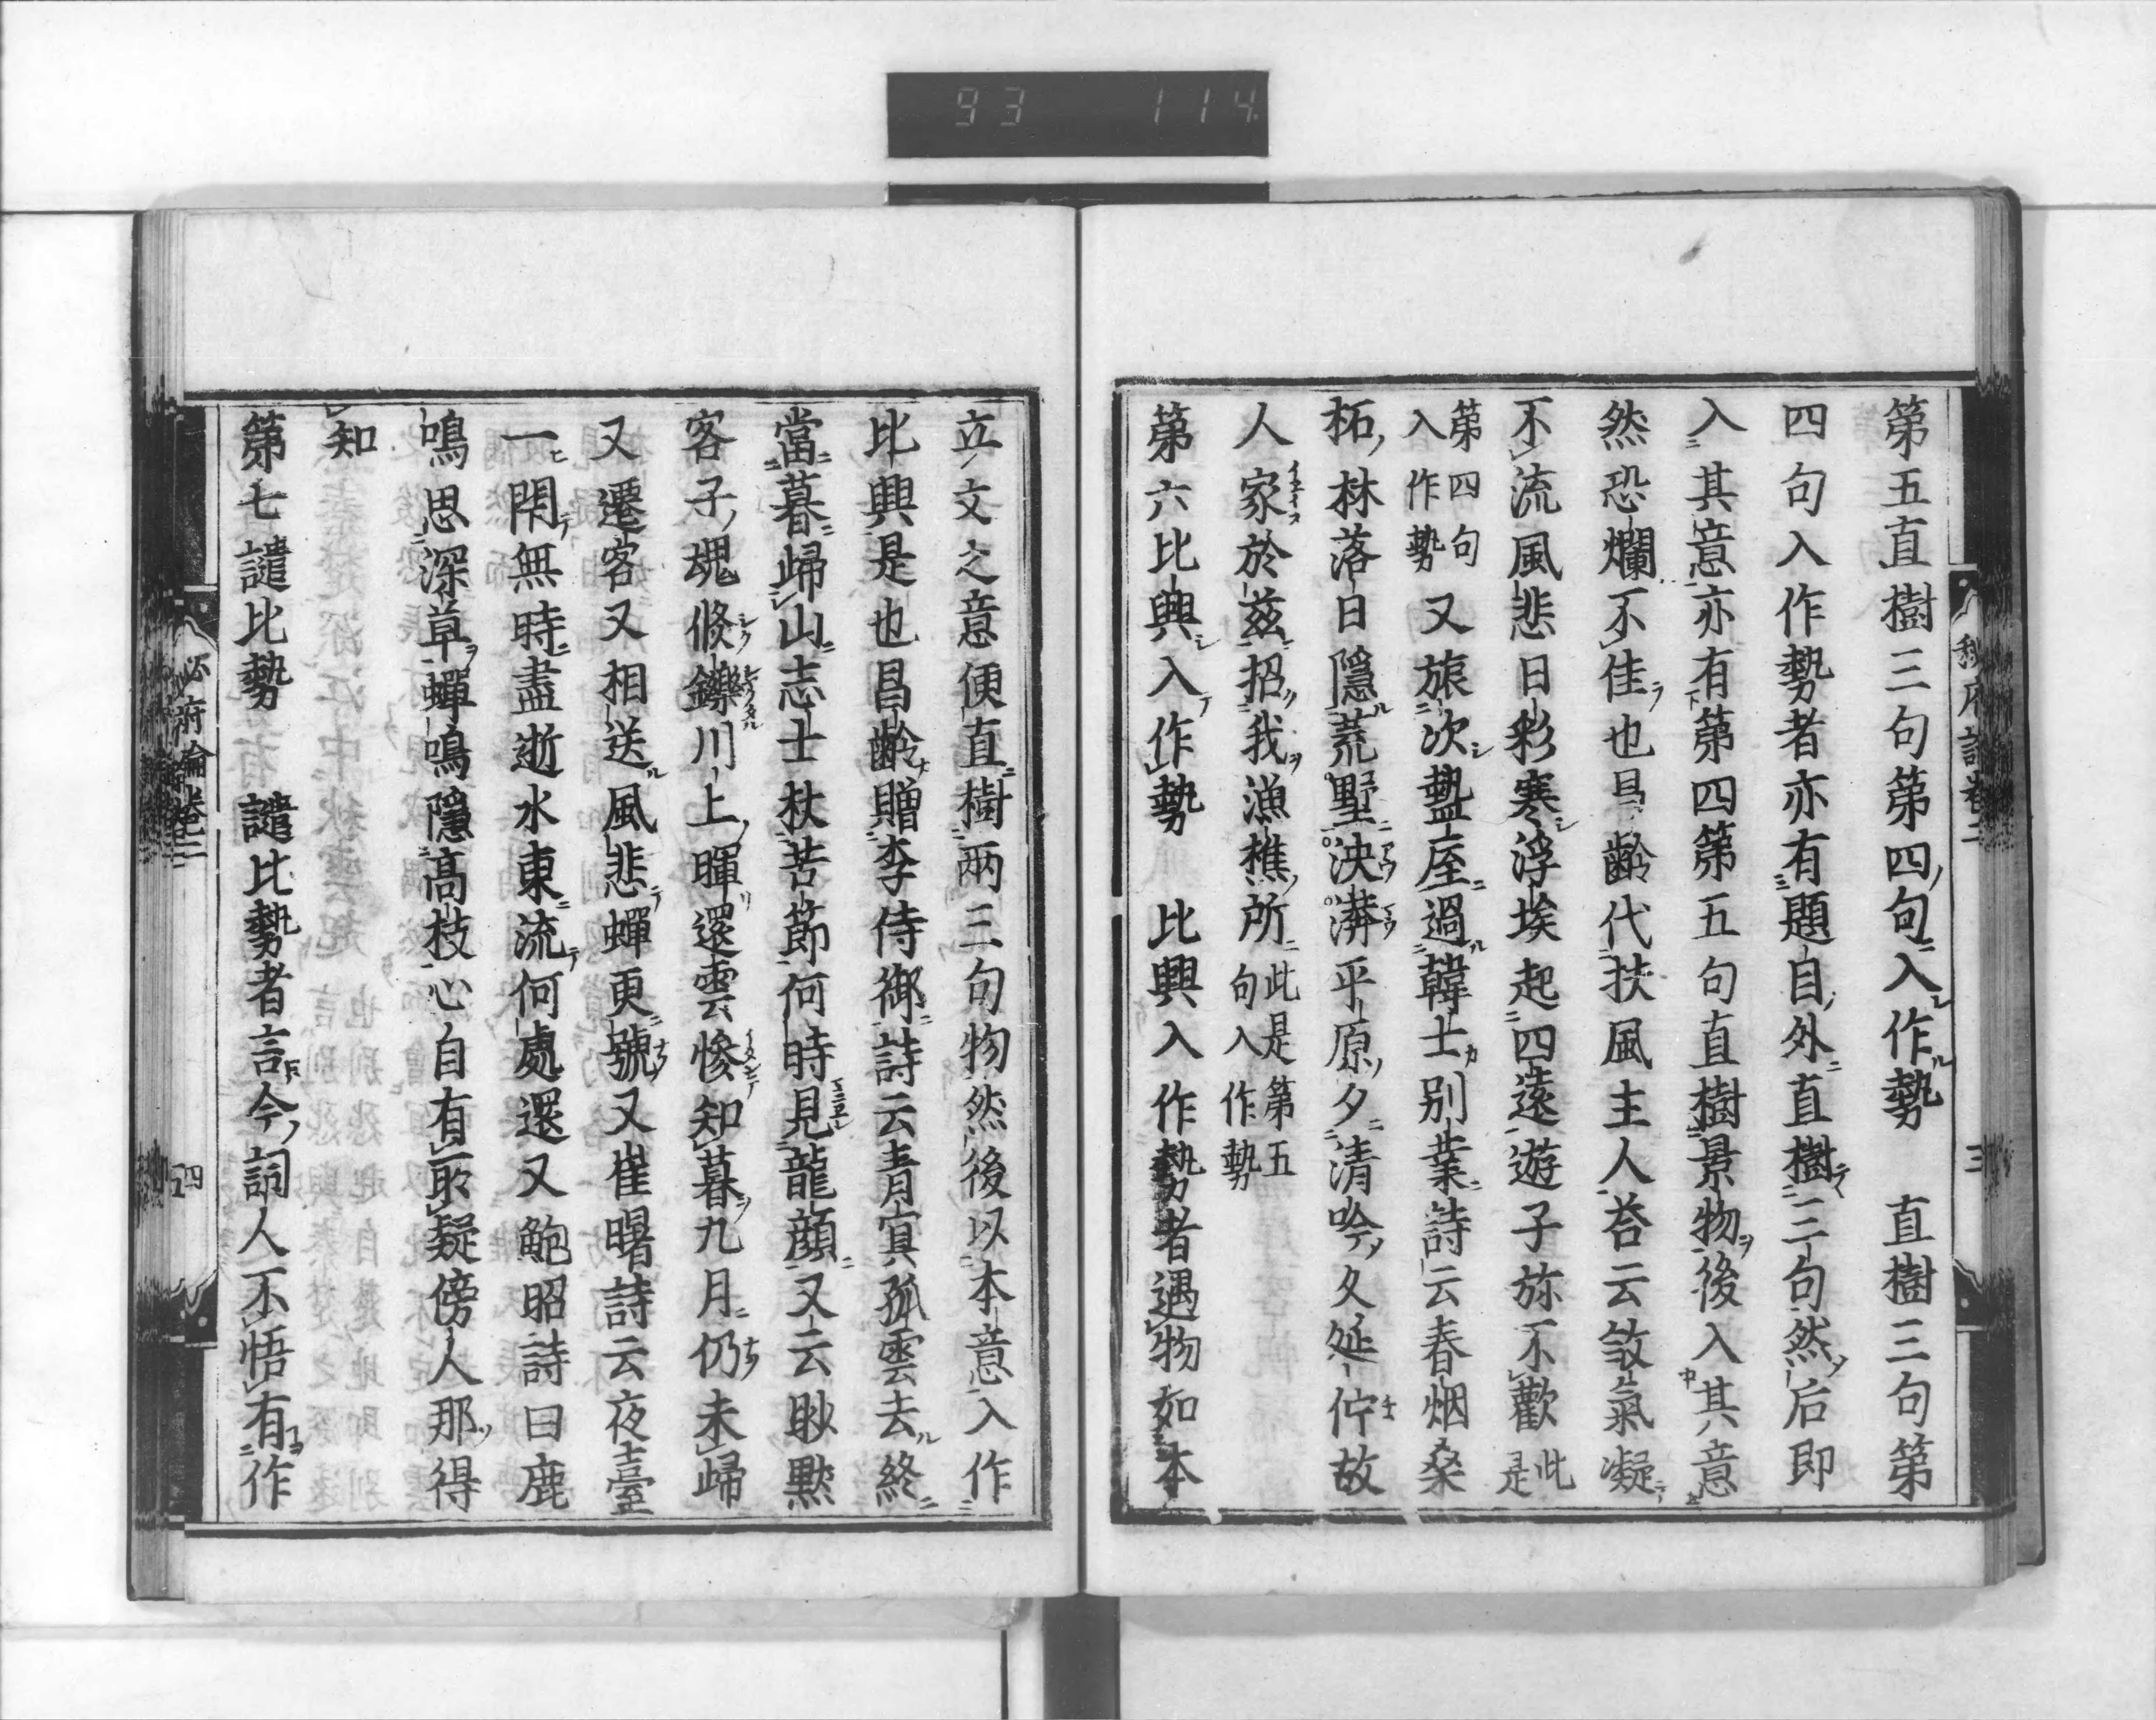 93 114
第五直樹三句第四句入作勢 直樹三句第
四句入作勢者亦有題目外直樹二句然后即
入其意亦有第四第五句直樹景物後入其意
然恐爛不佳也昌齡代扶風主人荅云敜氣凝
不流風悲日彩寒浮埃起四遠遊子弥不歡此是
第四句入作勢 又旅次盩厔過韓士別業詩云春烟桑
柘林落日隱荒墅泱漭平原夕清吟久延佇故
人家於茲招我漁樵所此是第五句入作勢
第六比興入作勢 比興入作勢者遇物如本
立文之意便直樹兩三句物然後以本意入作
比興是也昌齡贈李侍御詩云青冥孤雲去終
當暮歸山志士杖苦節何時見龍顔又云眇默
客子魂倏鑠川上暉還雲慘知暮九月仍未歸
又遷客又相送風悲蟬更號又崔曙詩云夜臺
一閉無時盡逝水東流何處還又鮑昭詩曰鹿
鳴思深草蟬鳴隱高枝心自有所疑傍人那得
知
第七謎比勢 謎比勢者言今詞人不悟有作
秘府論卷二 三
秘府論卷二 四